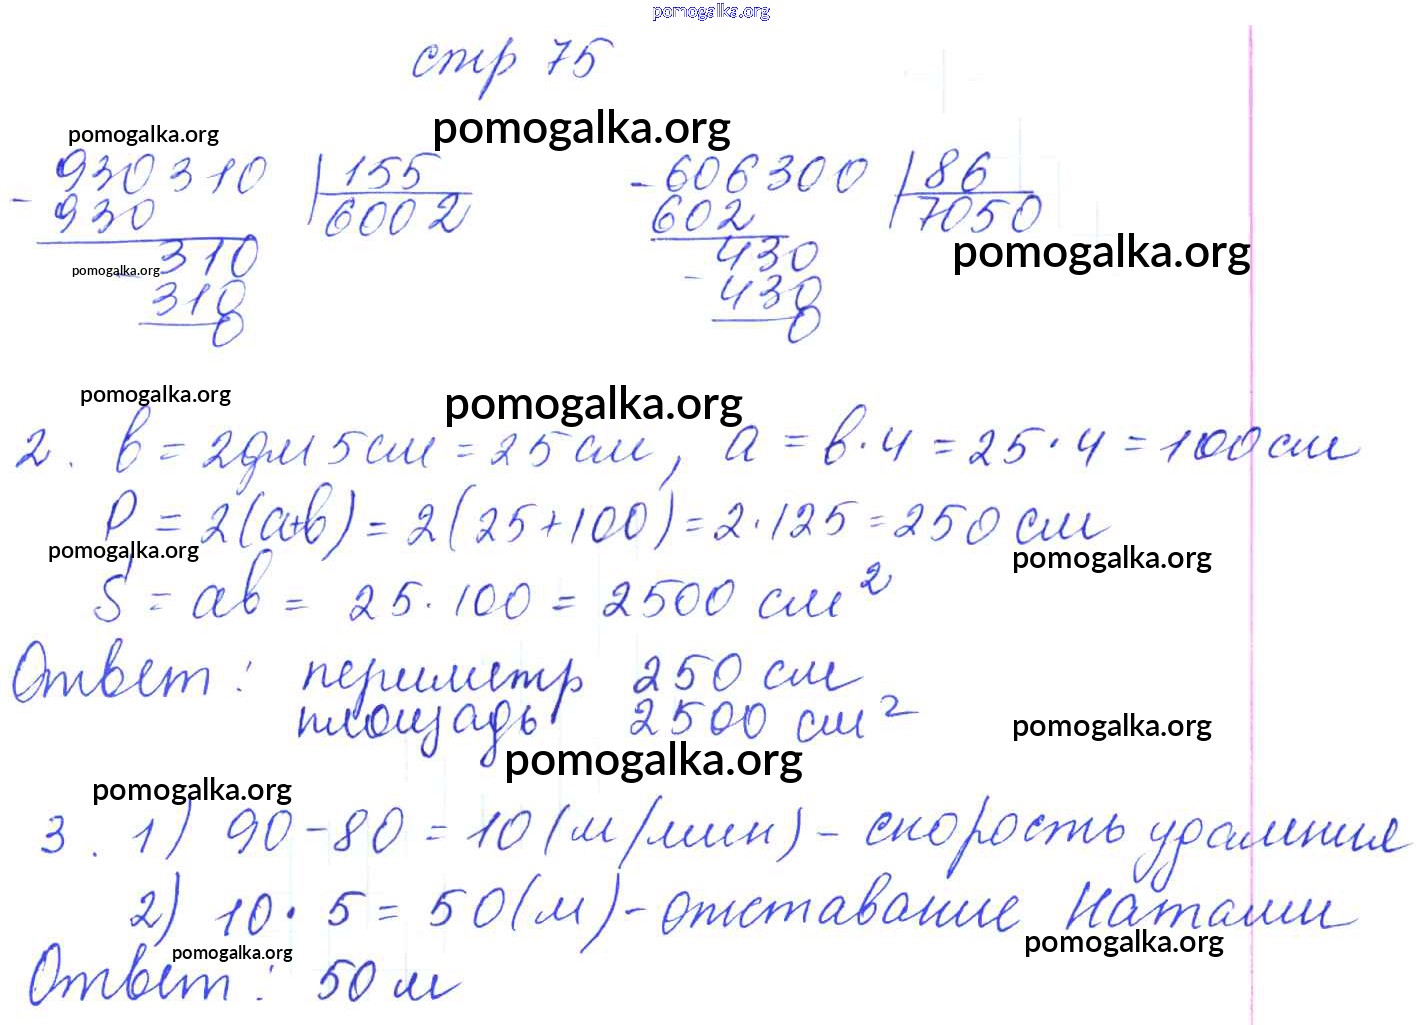 pomogalka.org
стр 75
pomogalka.org pomogalka.org
- 930310 | 155 - 606300 | 86
930 6002 602 7050
pomogalka.org
310 430
pomogalka.org - 310 - 430
0 0
pomogalka.org pomogalka.org
2. b = 2дм 5см = 25 см, a = b · 4 = 25 · 4 = 100 см
P = 2(a+b) = 2(25+100) = 2 · 125 = 250 см
pomogalka.org pomogalka.org
S = ab = 25 · 100 = 2500 см²
Ответ: периметр 250 см
площадь 2500 см²
pomogalka.org
pomogalka.org
pomogalka.org
3. 1) 90 - 80 = 10 (м/мин) - скорость удаления
2) 10 · 5 = 50 (м) - отставание Натами
pomogalka.org pomogalka.org
Ответ: 50 м